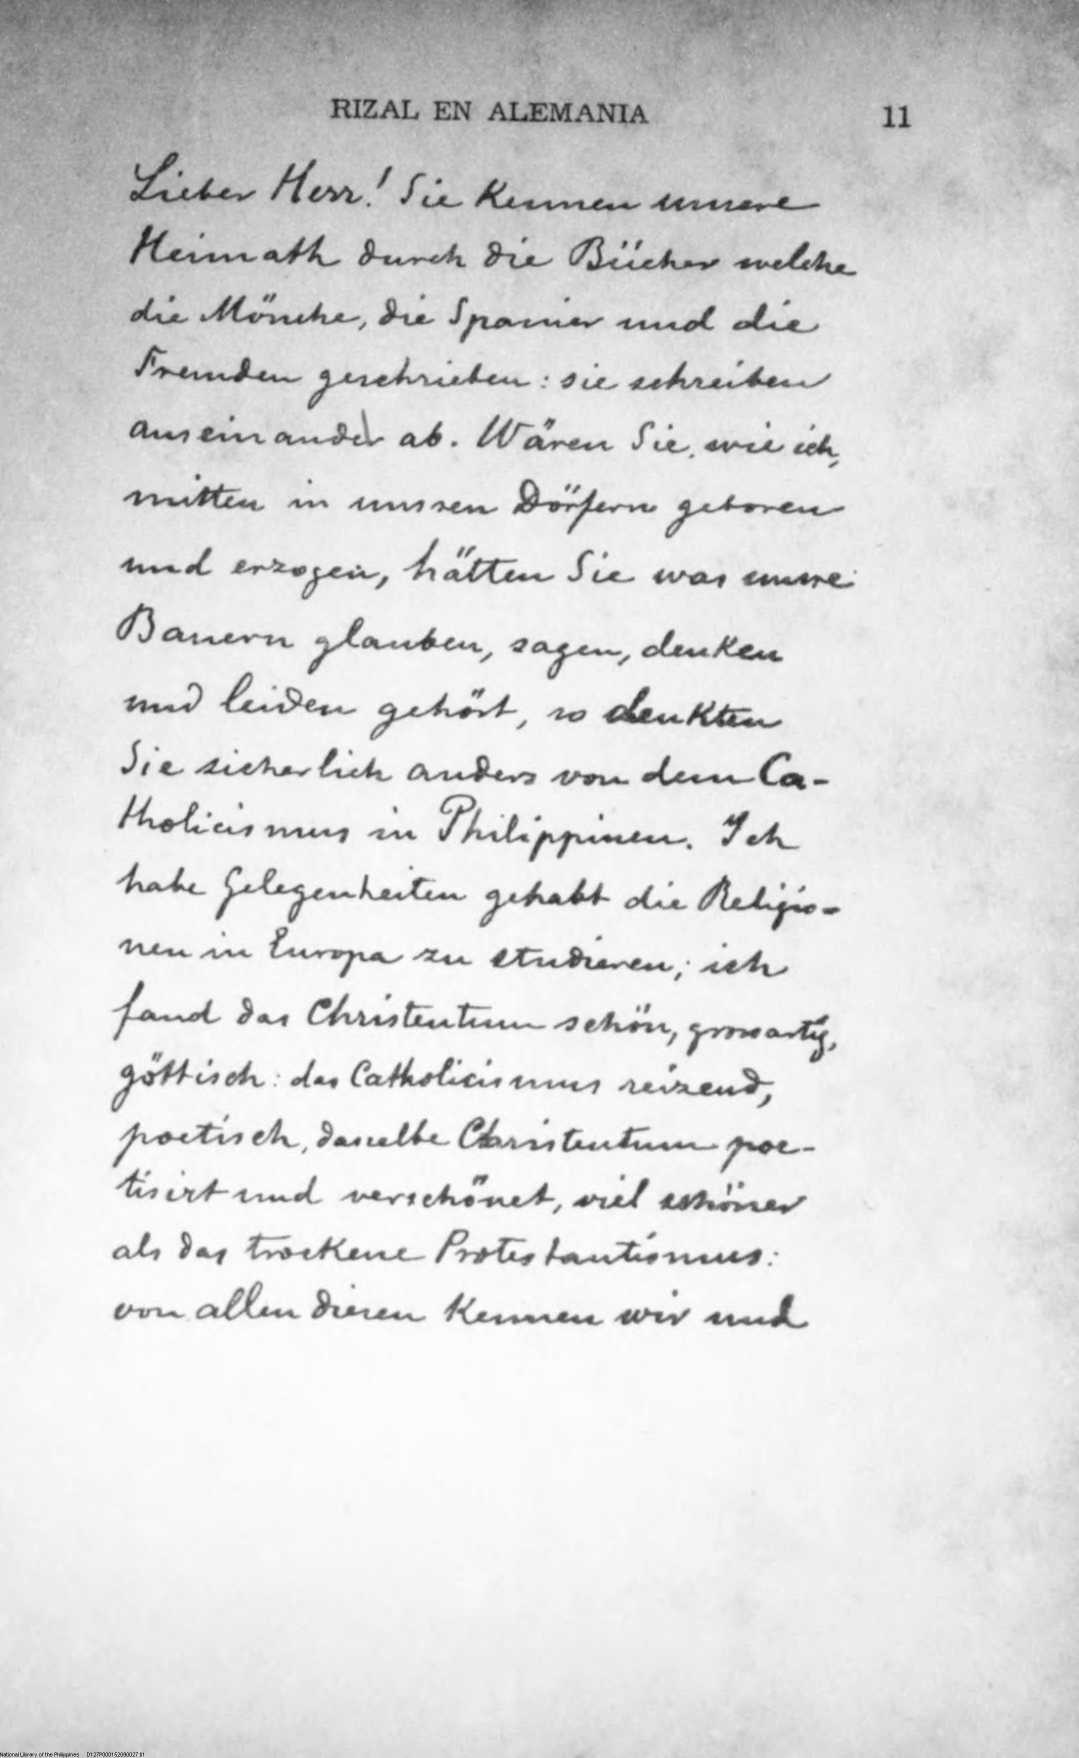 RIZAL EN ALEMANIA 11
Lieber Herr! Sie kennen unsere
Heimath durch die Bücher welche
die Mönche, die Spanier und die
Fremden geschrieben: sie schreiben
auseinander ab. Wären Sie, wie ich,
mitten in unssen Dörfern geboren
und erzogen, hätten Sie was unsre
Bauern glauben, sagen, denken
und leiden gehört, so denkten
Sie sicherlich anders von dem Ca-
tholicismus in Philippinen. Ich
habe Gelegenheiten gehabt die Religio-
nen in Europa zu studieren; ich
fand das Christentum schön, grossartig,
göttisch: das Catholicismus reizend,
poetisch, dasselbe Christentum poe-
tisirt und verschönet, viel schöner
als das trockene Protestantismus:
von allen diesen kennen wir und
National Library of the Philippines